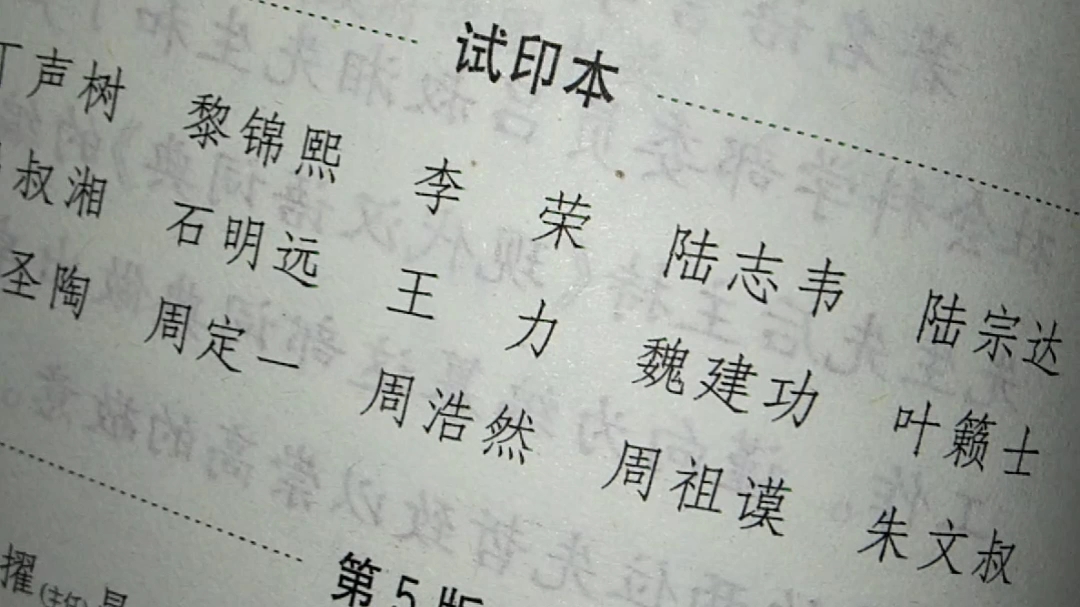 试印本
丁声树 黎锦熙 李 荣 陆志韦 陆宗达
叔湘 石明远 王 力 魏建功 叶籁士
圣陶 周定一 周浩然 周祖谟 朱文叔
第5版
擢(主任)